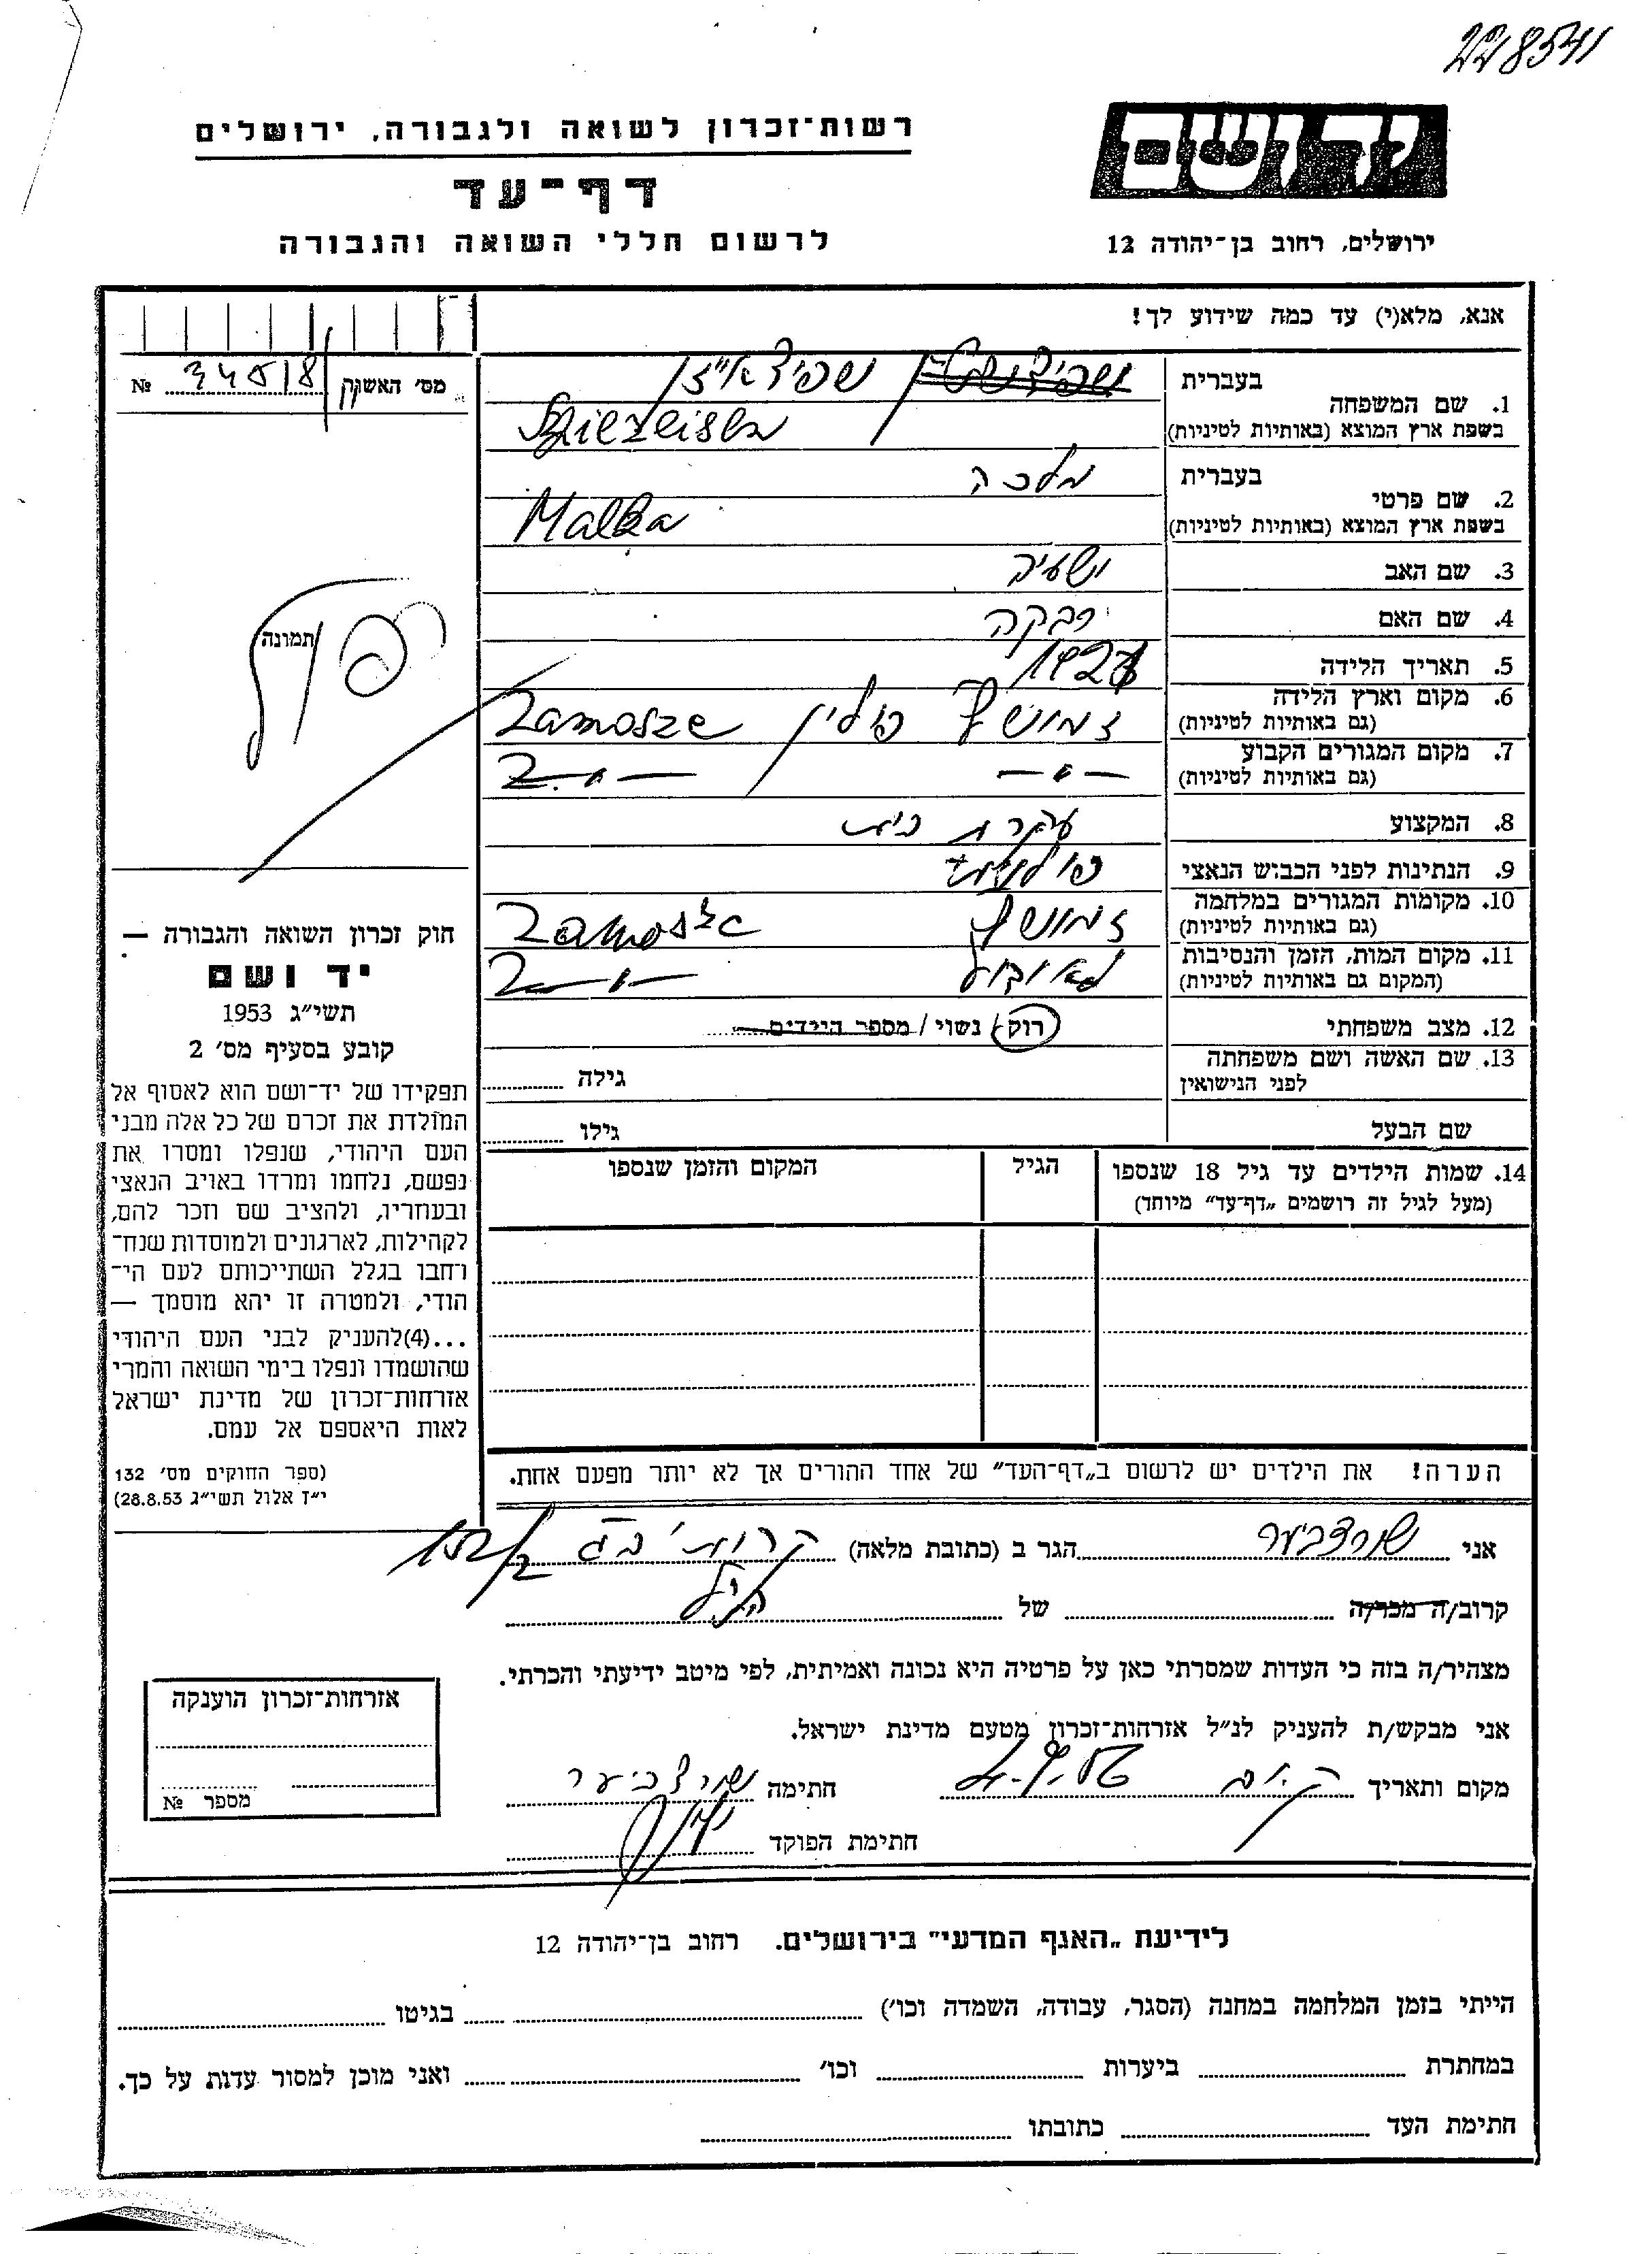 228541
רשות־זכרון לשואה ולגבורה, ירושלים
יד ושם
דף־עד
לרשום חללי השואה והגבורה
ירושלים, רחוב בן־יהודה 12
אנא, מלא(י) עד כמה שידוע לך!
מס׳ האשנק 34518 №
1. שם המשפחה
בעברית שפיזאייזן
בשפת ארץ המוצא (באותיות לטיניות)
2. שם פרטי
בעברית מלכה
בשפת ארץ המוצא (באותיות לטיניות) Malka
3. שם האב ישעיה
4. שם האם רבקה
5. תאריך הלידה
6. מקום וארץ הלידה זמושץ פולין Zamosze
(גם באותיות לטיניות)
7. מקום המגורים הקבוע — " —
(גם באותיות לטיניות)
8. המקצוע עקרת בית
9. הנתינות לפני הכבוש הנאצי פולנית
10. מקומות המגורים במלחמה זמושץ Zamosze
(גם באותיות לטיניות)
11. מקום המות, הזמן והנסיבות
(המקום גם באותיות לטיניות)
12. מצב משפחתי רוק/ נשוי / מספר הילדים
13. שם האשה ושם משפחתה
לפני הנישואין
גילה
שם הבעל גילו
14. שמות הילדים עד גיל 18 שנספו הגיל המקום והזמן שנספו
(מעל לגיל זה רושמים „דף־עד” מיוחד)
הערה! את הילדים יש לרשום ב„דף־העד” של אחד ההורים אך לא יותר מפעם אחת.
תמונה
חוק זכרון השואה והגבורה —
יד ושם
תשי״ג 1953
קובע בסעיף מס׳ 2
תפקידו של יד־ושם הוא לאסוף אל
המולדת את זכרם של כל אלה מבני
העם היהודי, שנפלו ומסרו את
נפשם, נלחמו ומרדו באויב הנאצי
ובעוזריו, ולהציב שם וזכר להם,
לקהילות, לארגונים ולמוסדות שנח־
רחבו בגלל השתייכותם לעם הי־
הודי, ולמטרה זו יהא מוסמך —
...(4)להעניק לבני העם היהודי
שהושמדו ונפלו בימי השואה והמרי
אזרחות־זכרון של מדינת ישראל
לאות היאספם אל עמם.
(ספר החוקים מס׳ 132
י״ז אלול תשי״ג 28.8.53)
אני שורצביער הגר ב (כתובת מלאה)
קרוב/ה מכר/ה של
מצהיר/ה בזה כי העדות שמסרתי כאן על פרטיה היא נכונה ואמיתית, לפי מיטב ידיעתי והכרתי.
אני מבקש/ת להעניק לנ״ל אזרחות־זכרון מטעם מדינת ישראל.
מקום ותאריך חתימה שורצביער
חתימת הפוקד
אזרחות־זכרון הוענקה
מספר №
לידיעת „האגף המדעי” בירושלים. רחוב בן־יהודה 12
הייתי בזמן המלחמה במחנה (הסגר, עבודה, השמדה וכו׳) בגיטו
במחתרת ביערות וכו׳ ואני מוכן למסור עדות על כך.
חתימת העד כתובתו